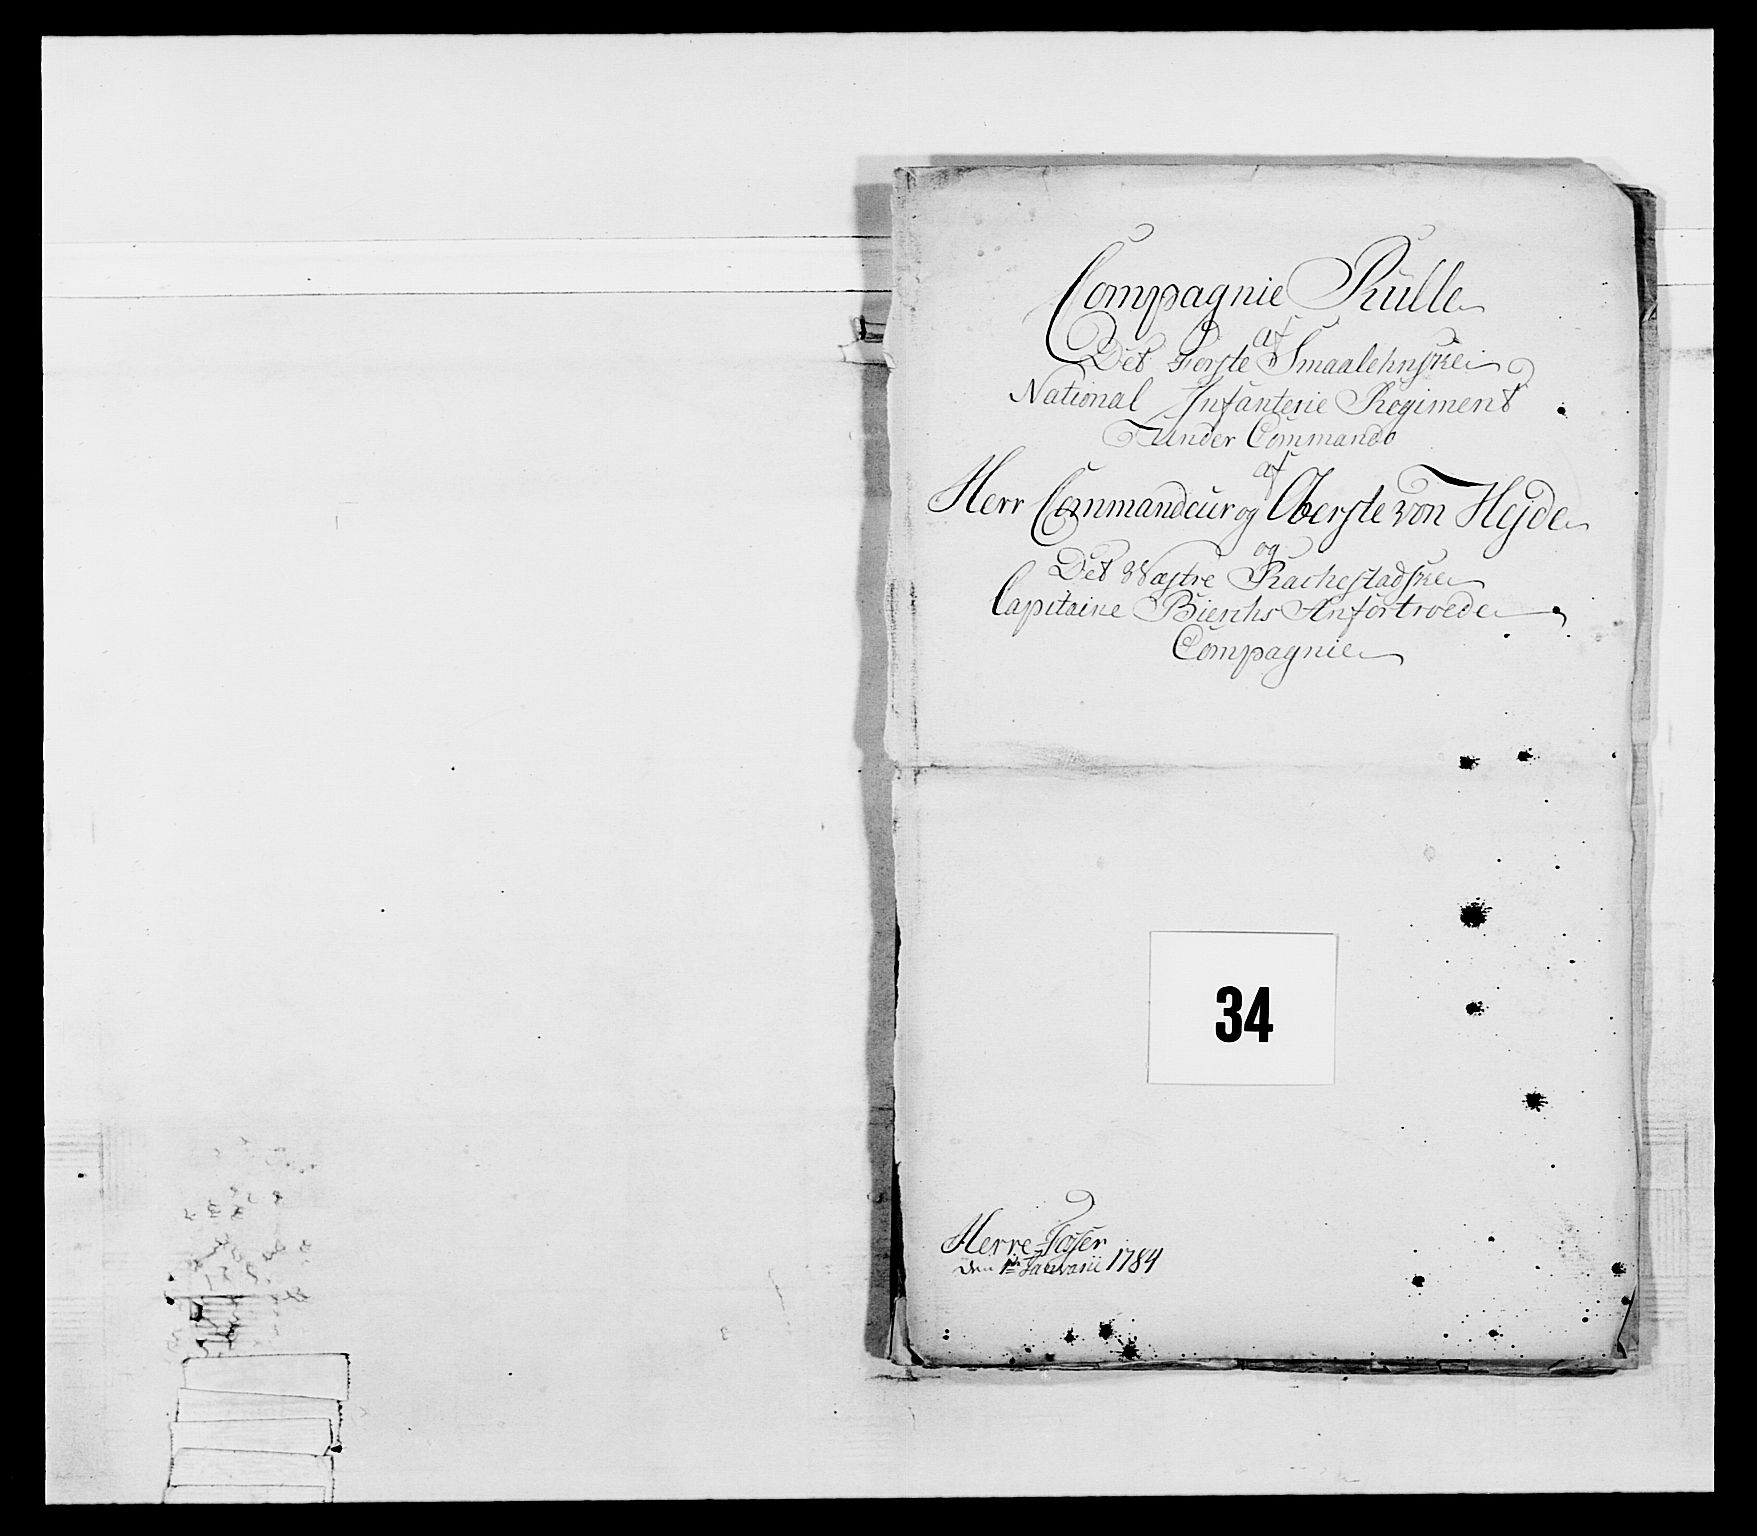 Compagnie Rulle
af
Det Første Smaalehnske
National Infanterie Regiment
under Commando
af
Herr Commandeur og Oberste von Hejde
og
Det Wæstre Rachestadske
Capitaine Bierchs Anfortroede
Compagnie
34
Herre-
den 1te Januarii 1784